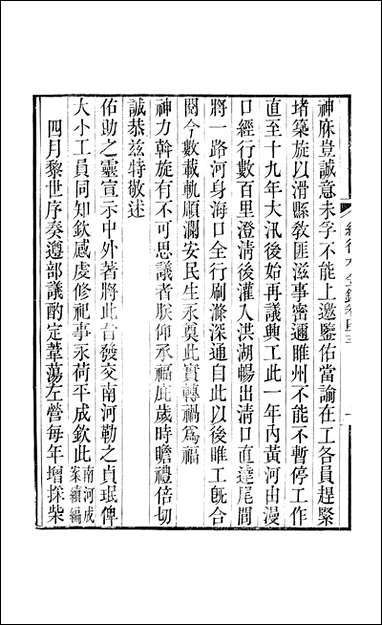 神庥豈誠意未孚不能上邀鑒佑當諭在工各員趕緊
堵築旋以滑縣敎匪滋事密邇睢州不能不暫停工作
直至十九年大汛後始再議興工此一年內黃河由漫
口經行數百里澄淸後灌入洪湖暢出淸口直達尾閭
將一路河身海口全行刷滌深通自此以後睢工旣合
閱今數載軌順瀾安民生永奠此實轉禍爲福
神力斡旋有不可思議者朕仰承福庇歲時瞻禮倍切
誠恭兹特敬述
佑助之靈宣示中外著將此旨發交南河勒之貞珉俾
大小工員同知欽感虔修祀事永荷平成欽此南河成案續編
四月黎世序奏遵部議酌定葦蕩左營每年增採柴